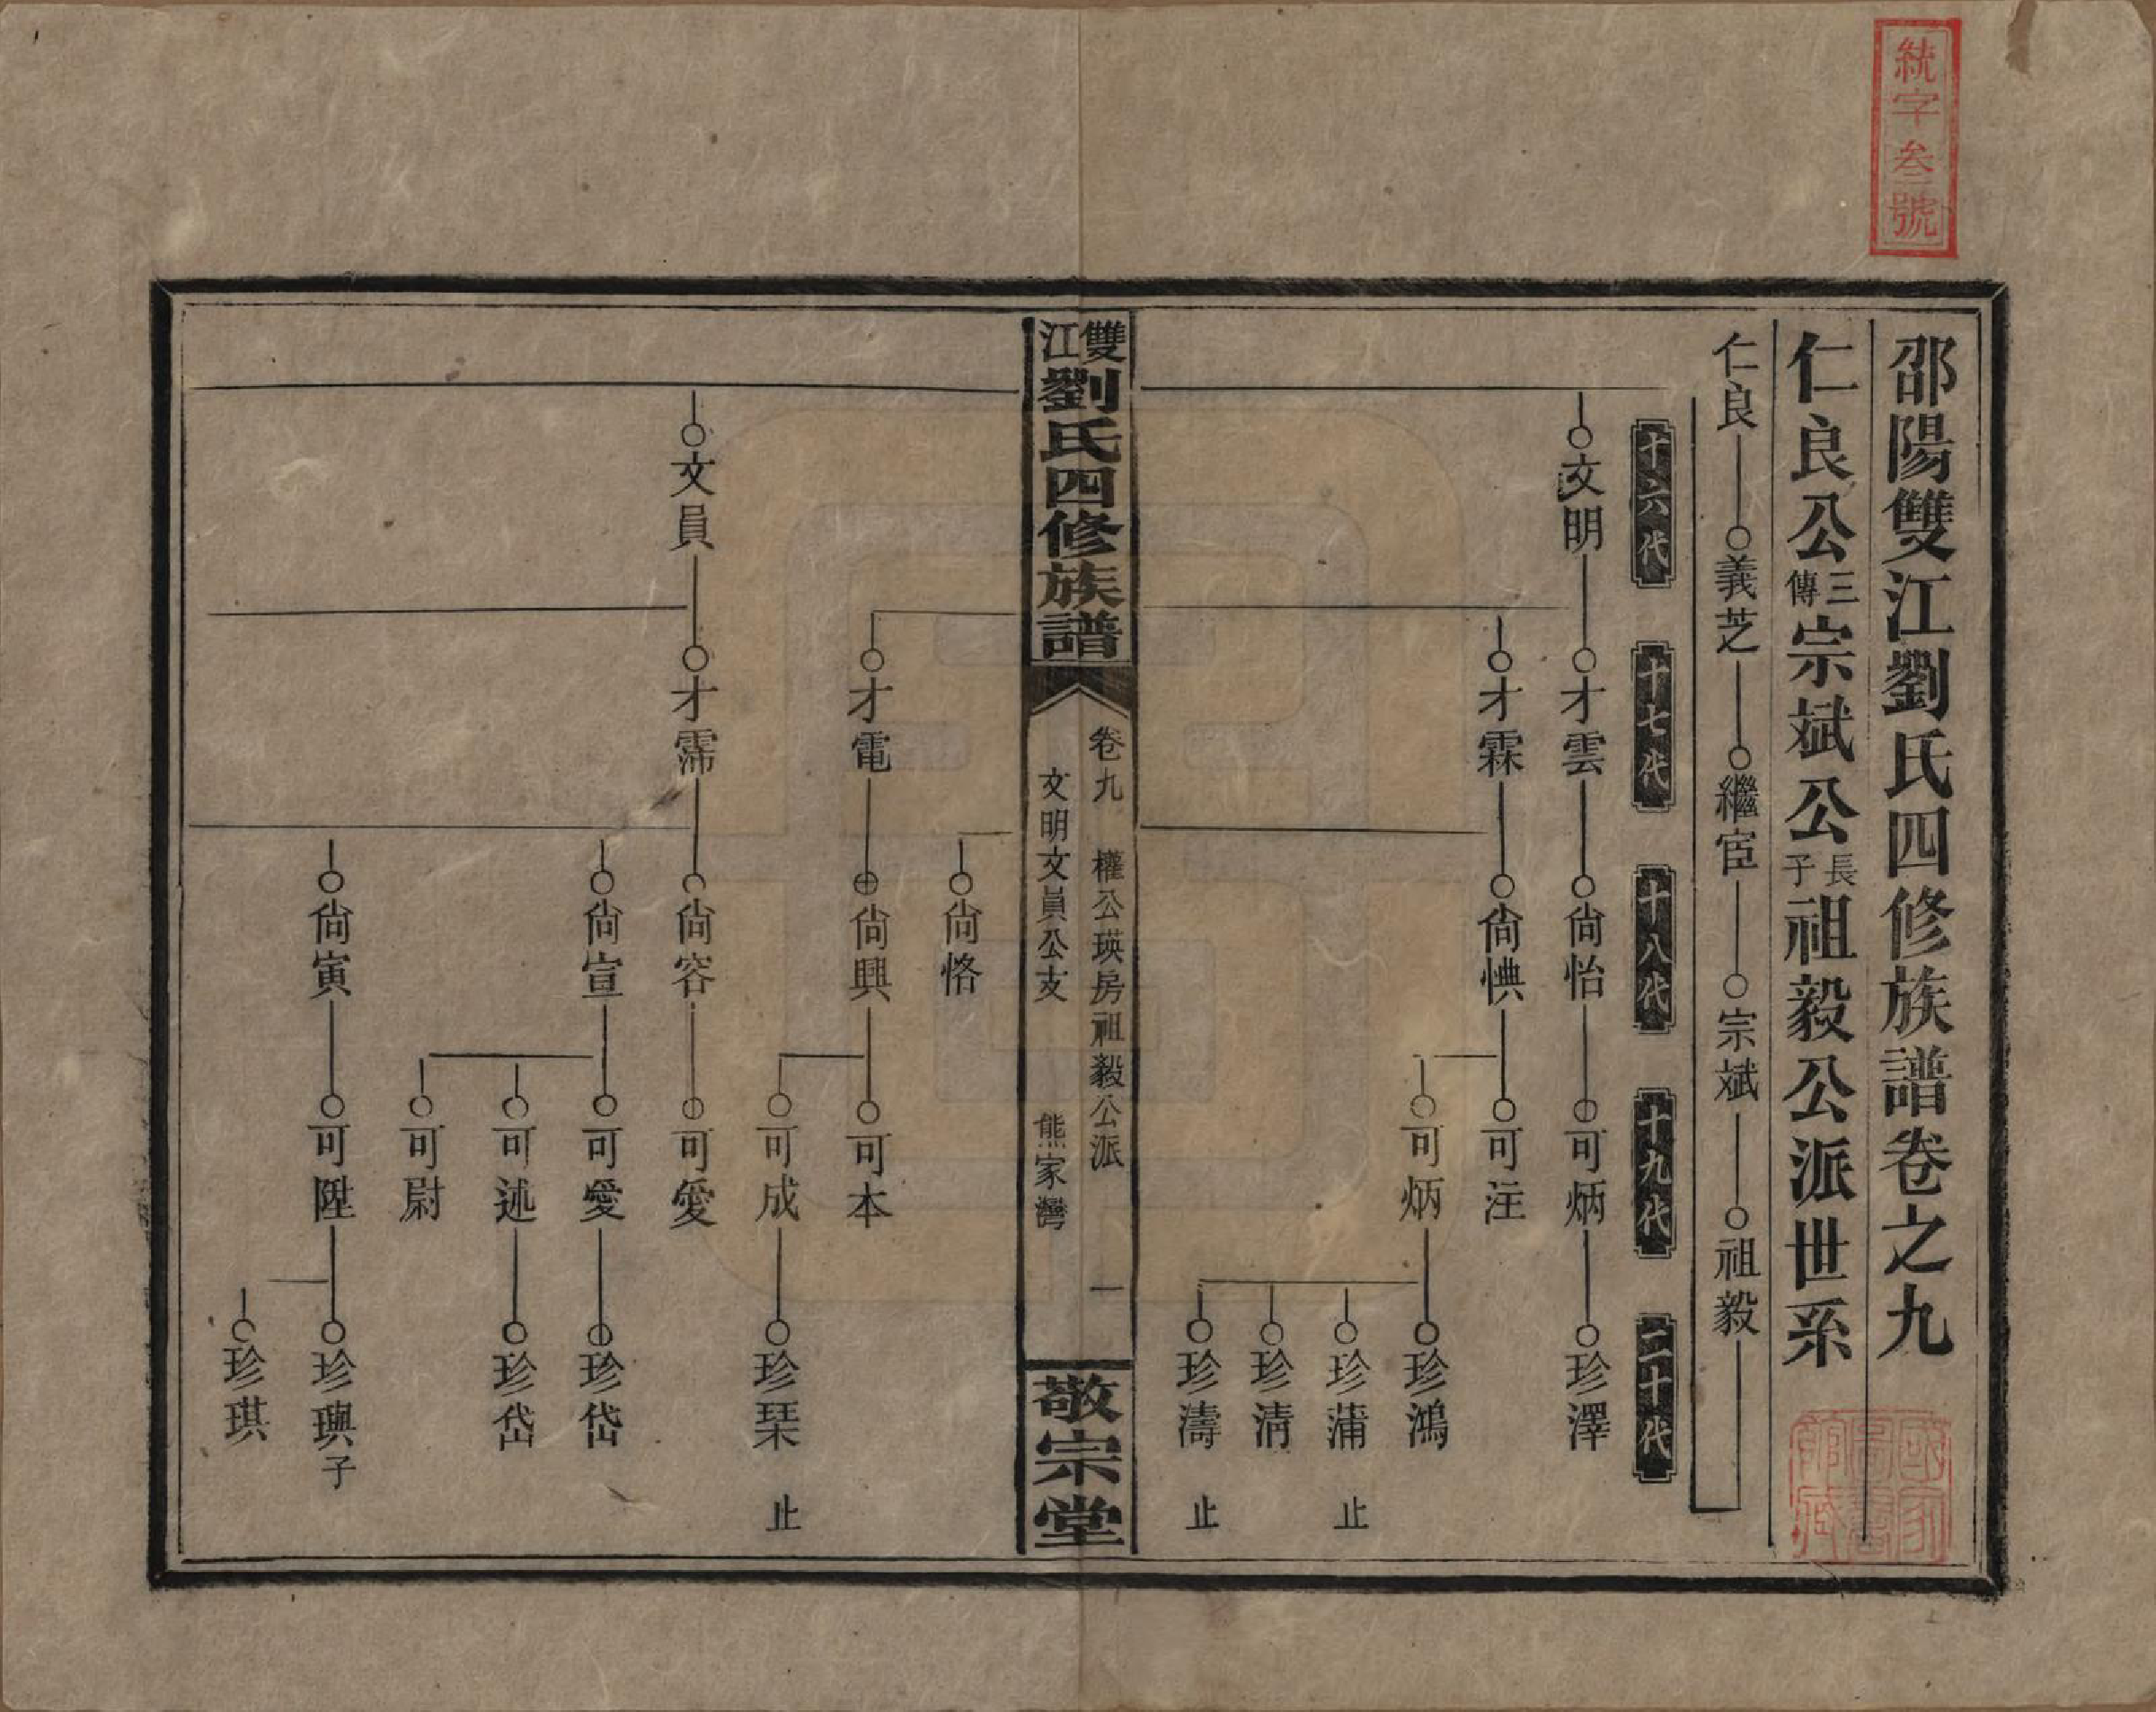 統字叁號
邵陽雙江劉氏四修族譜卷之九
仁良公三傳宗斌公長子祖毅公派世系
仁良 義芝 繼宦 宗斌 祖毅
十六代 十七代 十八代 十九代 二十代
文明 才雲 尙怡 可炳 珍澤
才霖 尙惈 可注
可炳 珍鴻
珍蒲 止
珍淸
珍濤 止
雙江劉氏四修族譜
卷九 權公瑛房祖毅公派 一
文明文員公支 熊家灣
敬宗堂
尙恪
才電 尙興 可本
可成 珍琹 止
文員 才霈 尙容 可愛
尙宣 可愛 珍岱
可述 珍岱
可尉
尙寅 可陞 珍璵子
珍琪
國家圖書館藏